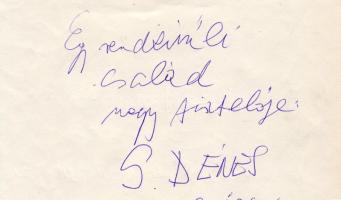 Egy rendkívüli
család
nagy tisztelője:
S. DÉNES